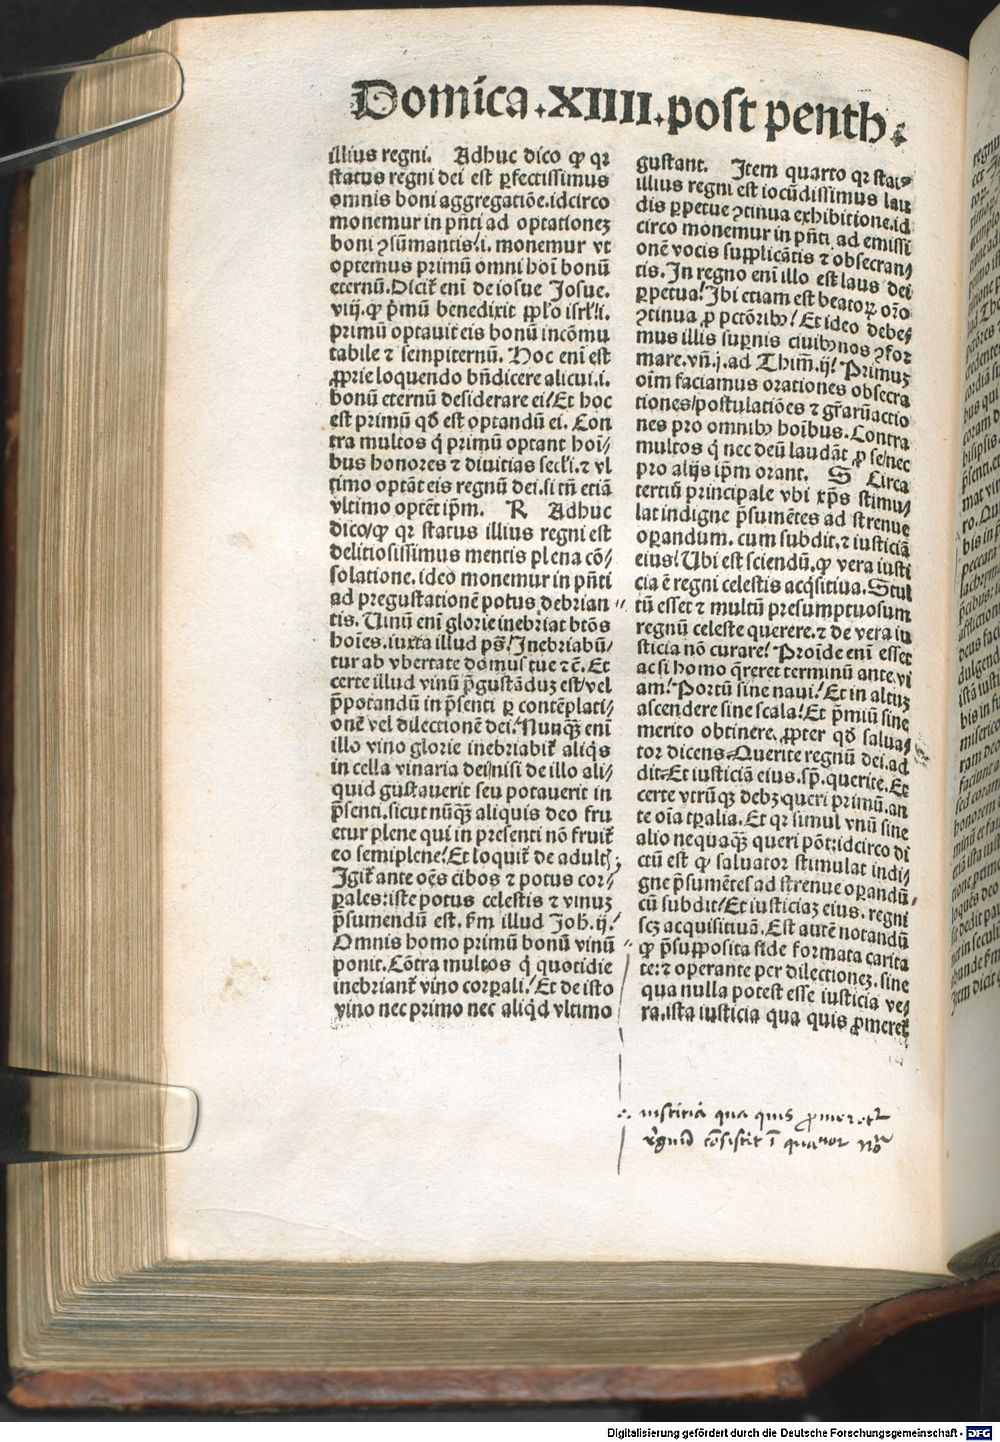 Domica .XIIII. post penth.
illius regni. Adhuc dico ꝙ qꝛ
status regni dei est ꝑfectissimus
omnis boni aggregatiōe. idcirco
monemur in pn̄ti ad optationeꝫ
boni ꝯsūmantis/.i. monemur vt
optemus primū omni hoī bonū
eternū. Dicit̄ eni̅ de iosue Josue.
viij. ꝙ pͥmū benedixit ppl̓o isrl̓/.i.
primū optauit eis bonū incōmu
tabile ⁊ sempiternū. Hoc eni̅ est
ꝓprie loquendo bn̄dicere alicui.i.
bonū eternū desiderare ei/ Et hoc
est primū qḋ est optandū ei. Con
tra multos q̇ primū optant hoī/
bus honores ⁊ diuitias secl̓i. ⁊ vl
timo optāt eis regnū dei. si tn̄ etiā
vltimo optēt ip̄m. R Adhuc
dico/ ꝙ qꝛ status illius regni est
delitiosissimus mentis plena cō/
solatione. ideo monemur in pn̄ti
ad pregustationē potus debrian
tis. Uinū eni̅ glorie inebriat btōs
hoīes. iuxta illud ps̄/ Inebriabū/
tur ab vbertate domus tue ⁊c̄. Et
certe illud vinū p̄gustāduꝫ est/ vel
p̄potandū in p̄senti ꝑ contēplati/
onē vel dilectionē dei/ Nunqꝫ̄ eni̅
illo vino glorie inebriabit̄ aliq̇s
in cella vinaria dei/ nisi de illo ali/
quid gustauerit seu potauerit in
p̄senti. sicut nūqꝫ̄ aliquis deo fru
etur plene qui in presenti nō fruit̄
eo semiplene/ Et loquit̄ de adult̓
Igit̄ ante oēs cibos ⁊ potus cor/
ꝑales: iste potus celestis ⁊ vinuꝫ
p̄sumendū est. ẜm illud Joh̄. ij/
Omnis homo primū bonū vinū
ponit. Cōtra multos q̇ quotidie
inebriant̄ vino corꝑali/ Et de isto
vino nec primo nec aliq̇d vltimo
gustant. Item quarto qꝛ stat/
illius regni est iocūdissimus lau
dis ꝑpetue ꝯtinua exhibitione. id
circo monemur in pn̄ti ad emissi
onē vocis supplicātis ⁊ obsecran/
tis. In regno eni̅ illo est laus dei
ꝑpetua/ Ibi etiam est beatoꝝ or̄o
ꝯtinua ꝓ pctōribꝰ/ Et ideo debe/
mus illis suꝑnis ciuibꝰ nos ꝯfor
mare. vn̄. j. ad Thim̄. ij/ Primuꝫ
oīm faciamus orationes obsecra
tiones/ postulatiōes ⁊ gr̄arū actio
nes pro omnibꝰ hoībus. Contra
multos q̇ nec deū laudāt ꝓ se/ nec
pro alijs ip̄m orant. S Circa
tertiū principale vbi xp̄s stimu/
lat indigne p̄sumētes ad strenue
oꝑandum. cum subdit. ⁊ iusticiā
eius/ Ubi est sciendū. ꝙ vera iusti
cia ē regni celestis acq̇sitiua. Stul
tū esset ⁊ multū presumptuosum
regnū celeste querere. ⁊ de vera iu
sticia nō curare/ Proīde eni̅ esset
ac si homo q̄reret terminū ante vi
am/ Portū sine naui/ Et in altuꝫ
ascendere sine scala/ Et p̄miū sine
merito obtinere. ꝓpter qḋ salua/
tor dicens. Querite regnū dei. ad
dit. Et iusticiā eius. sp̄. querite. Et
certe vtrūqꝫ debꝫ queri primū. an
te oīa tꝑalia. Et qꝛ simul vnū sine
alio nequaqꝫ̄ queri pōt: idcirco di
ctū est ꝙ saluator stimulat indi/
gne p̄sumētes ad strenue oꝑandū
cū subdit/ Et iusticiaꝫ eius. regni
scꝫ acquisitiuā. Est autē notandū
ꝙ p̄supposita fide formata carita
te: ⁊ operante per dilectioneꝫ. sine
qua nulla potest esse iusticia ve/
ra. ista iusticia qua quis ꝓmeret̄
iusticia qua quis ꝓmeret̄
consistit ī quatuor
Digitalisierung gefördert durch die Deutsche Forschungsgemeinschaft - DFG